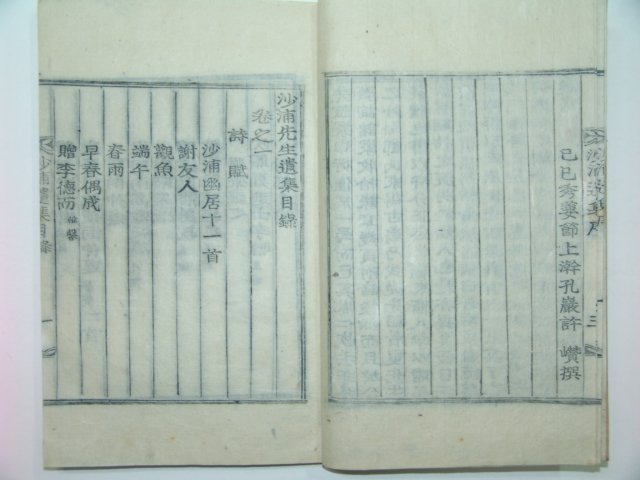 沙浦遺集序
三
己巳秀葽節上澣孔巖許 巑撰
沙浦先生遺集目錄
卷之一
詩賦
沙浦幽居十一首
謝友人
觀魚
端午
春雨
早春偶成
贈李德而
沙浦遺集目錄
一